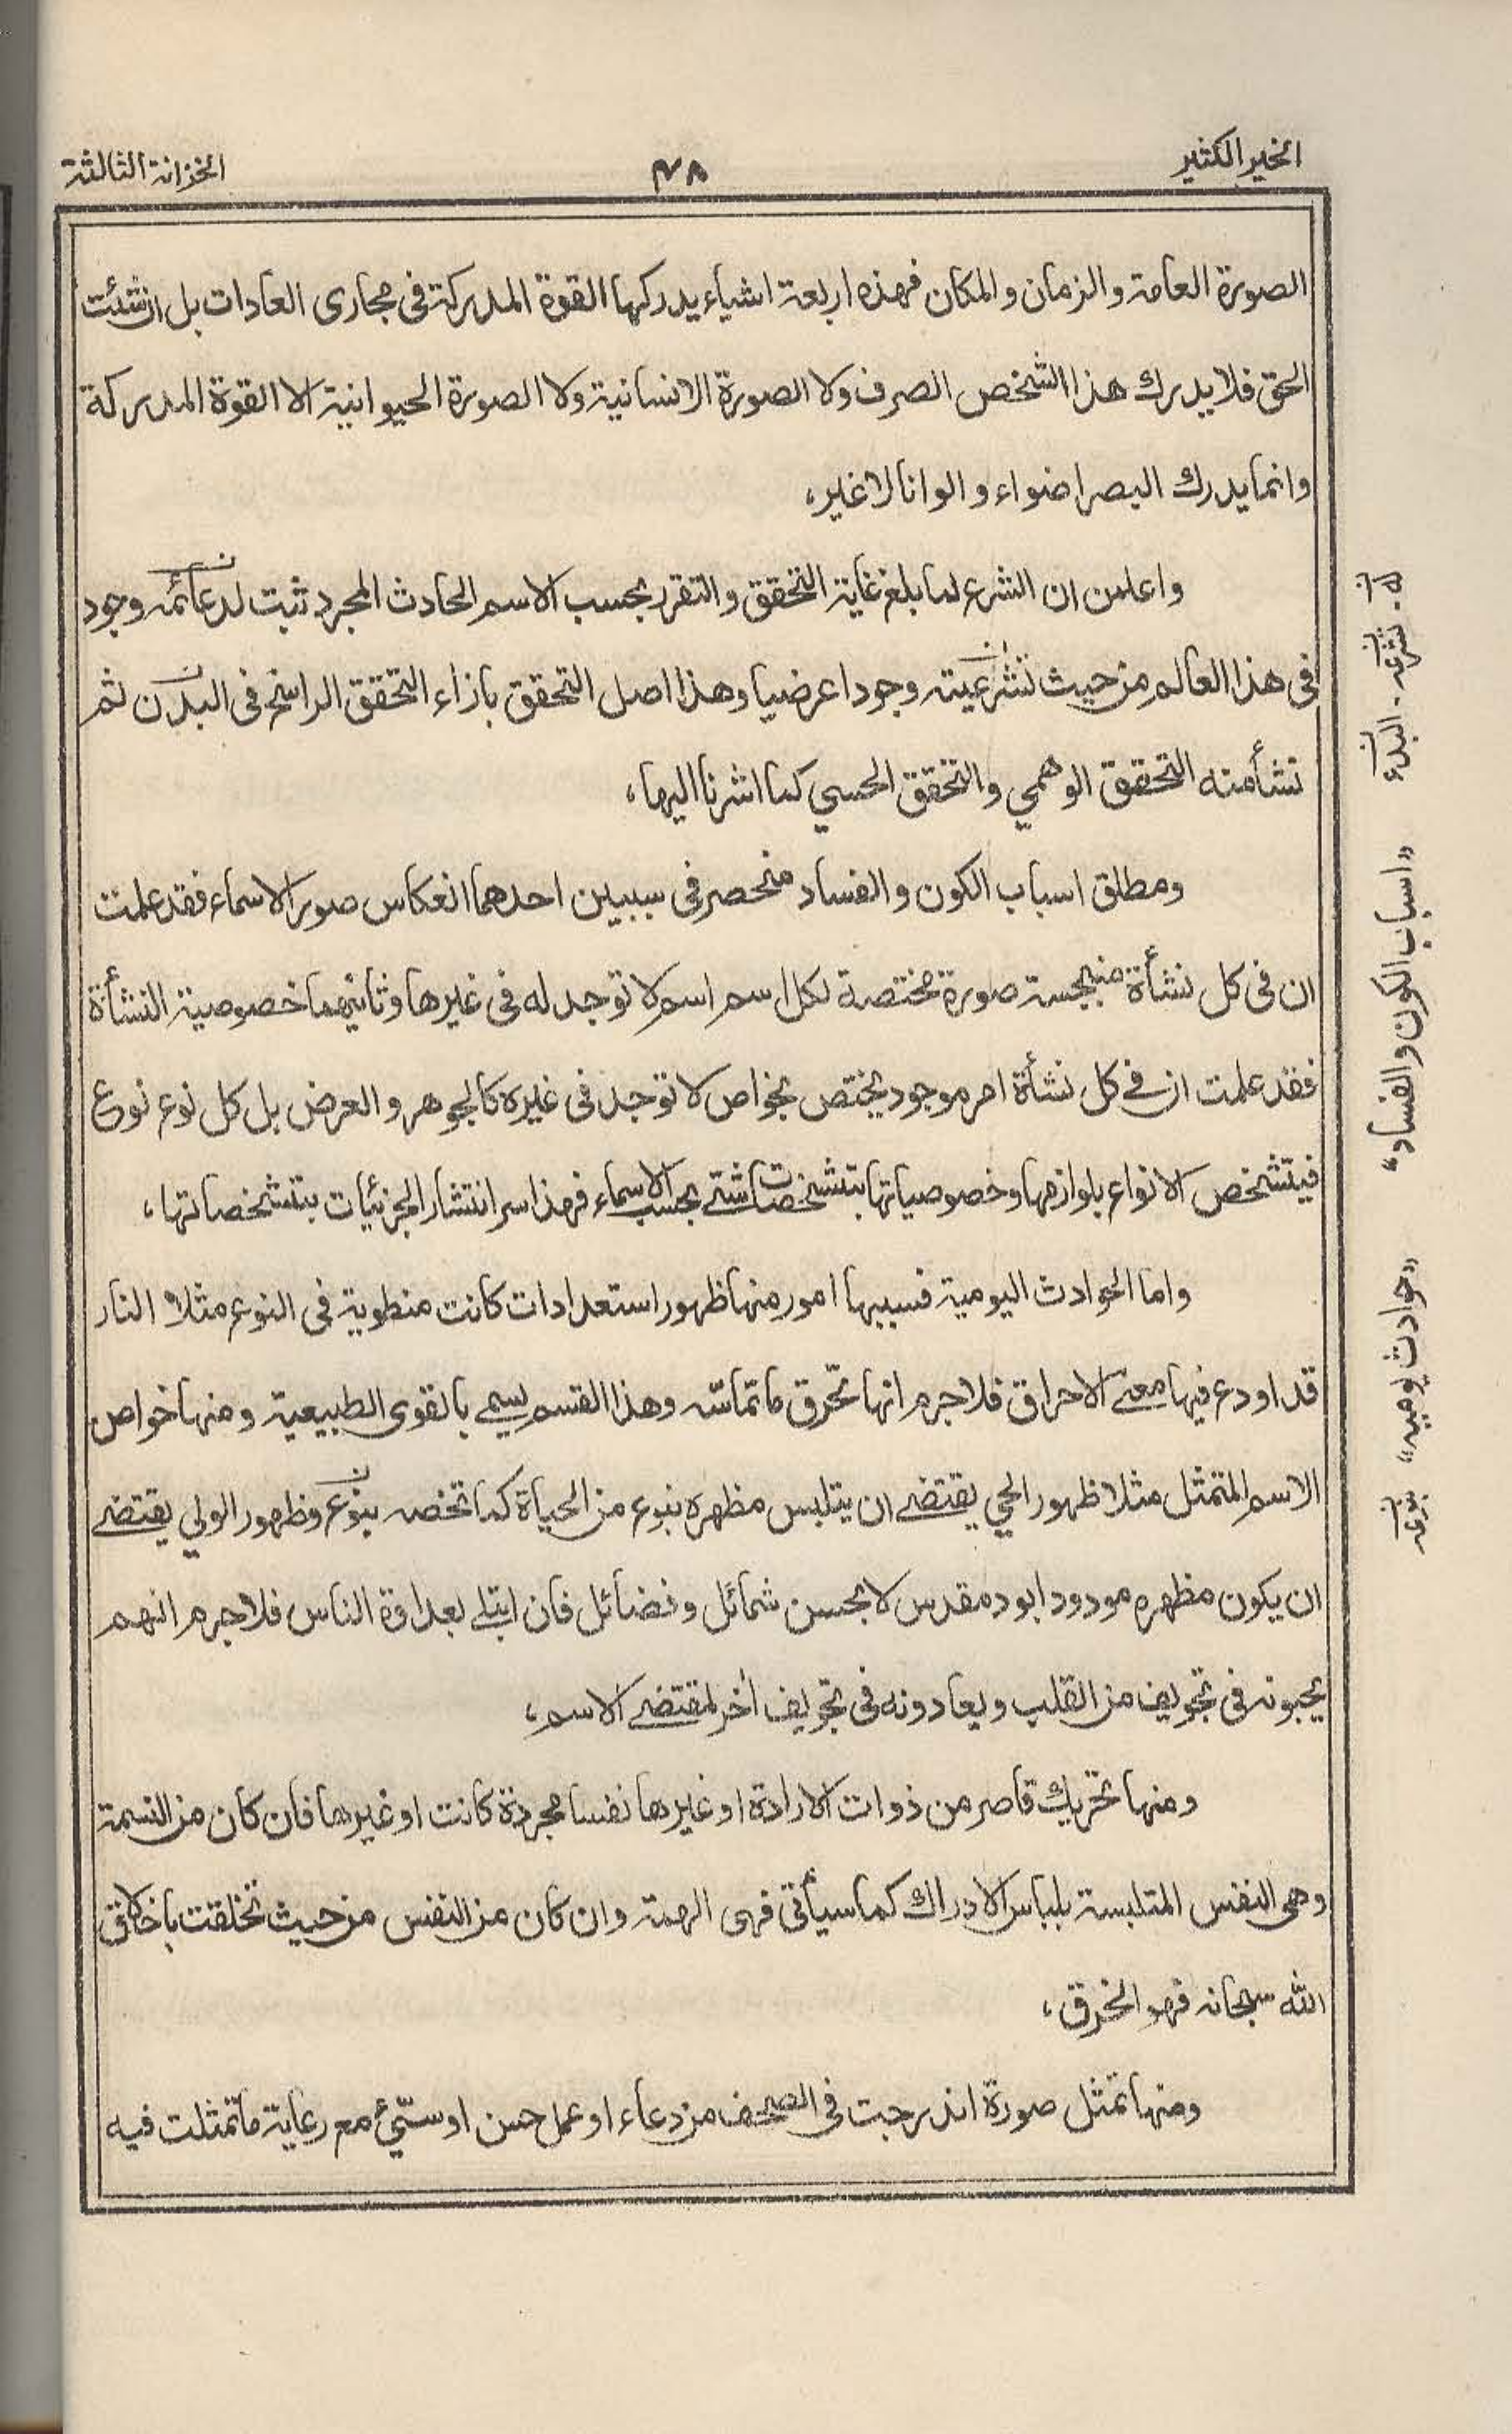 الخير الكثير
٤٨
الخزانة الثالثة
الصورة العامة والزمان والمكان فهذه اربعة اشياء يدركها القوة المدركة فى مجارى العادات بل ان شئت
الحق فلا يدرك هذا الشخص الصرف ولا الصورة الانسانية ولا الصورة الحيوانية الا القوة المدركة
وانما يدرك البصر اضواء والوانا لا غير،
واعلمن ان الشرع لما بلغ غاية التحقق والتقرر بحسب الاسم الحادث المجرد ثبت لدعائمه وجود
فى هذا العالم من حيث تشرعيته وجودا عرضيا وهذا اصل التحقق بازاء التحقق الراسخ فى البدن ثم
نشأ منه التحقق الوهمي والتحقق الحسي كما اشرنا اليها،
ومطلق اسباب الكون والفساد منحصر فى سببين احدهما انعكاس صور الاسماء فقد علمت
ان فى كل نشأة منبجسة صورة مختصة لكل اسم اسم لا توجد له فى غيرها وثانيهما خصوصية النشأة
فقد علمت ان في كل نشأة امر موجود يختص بخواص لا توجد فى غيره كالجوهر والعرض بل كل نوع نوع
فيتشخص الانواع بلوازمها وخصوصياتها بتشخصات شتے بحسب الاسماء فهذا سر انتشار الجزئيات بتشخصاتها،
واما الحوادث اليومية فسببها امور منها ظهور استعدادات كانت منطوية فى النوع مثلا النار
قد اودع فيها معنے الاحراق فلا جرم انها تحرق ما تماسّه وهذا القسم يسمے بالقوى الطبيعية ومنها خواص
الاسم المتمثل مثلا ظهور الحي يقتضے ان يتلبس مظهره بنوع من الحياة كما تخصه بنوع وظهور الولي يقتضے
ان يكون مظهره مودود ابود مقدس لا بحسن شمائل وفضائل فان ابتلے بعداوة الناس فلا جرم انهم
يحبونه فى تجويف من القلب ويعادونه فى تجويف اٰخر لمقتضے الاسم،
ومنها تحريك قاصر من ذوات الارادة او غيرها نفسا مجردة كانت او غيرها فان كان من النسمة
وهى النفس المتلبسة بلباس الادراك كما سيأتى فهى الهمة وان كان من النفس من حيث تخلقت باخلاق
الله سبحانه فهو الخرق،
ومنها تمثل صورة اندرجت فى الصحف من دعاء او عمل حسن او سيّئ مع رعاية ما تمثلت فيه
تشرعه - البدء
«اسباب الكون والفساد»
«حوادث يوميه»